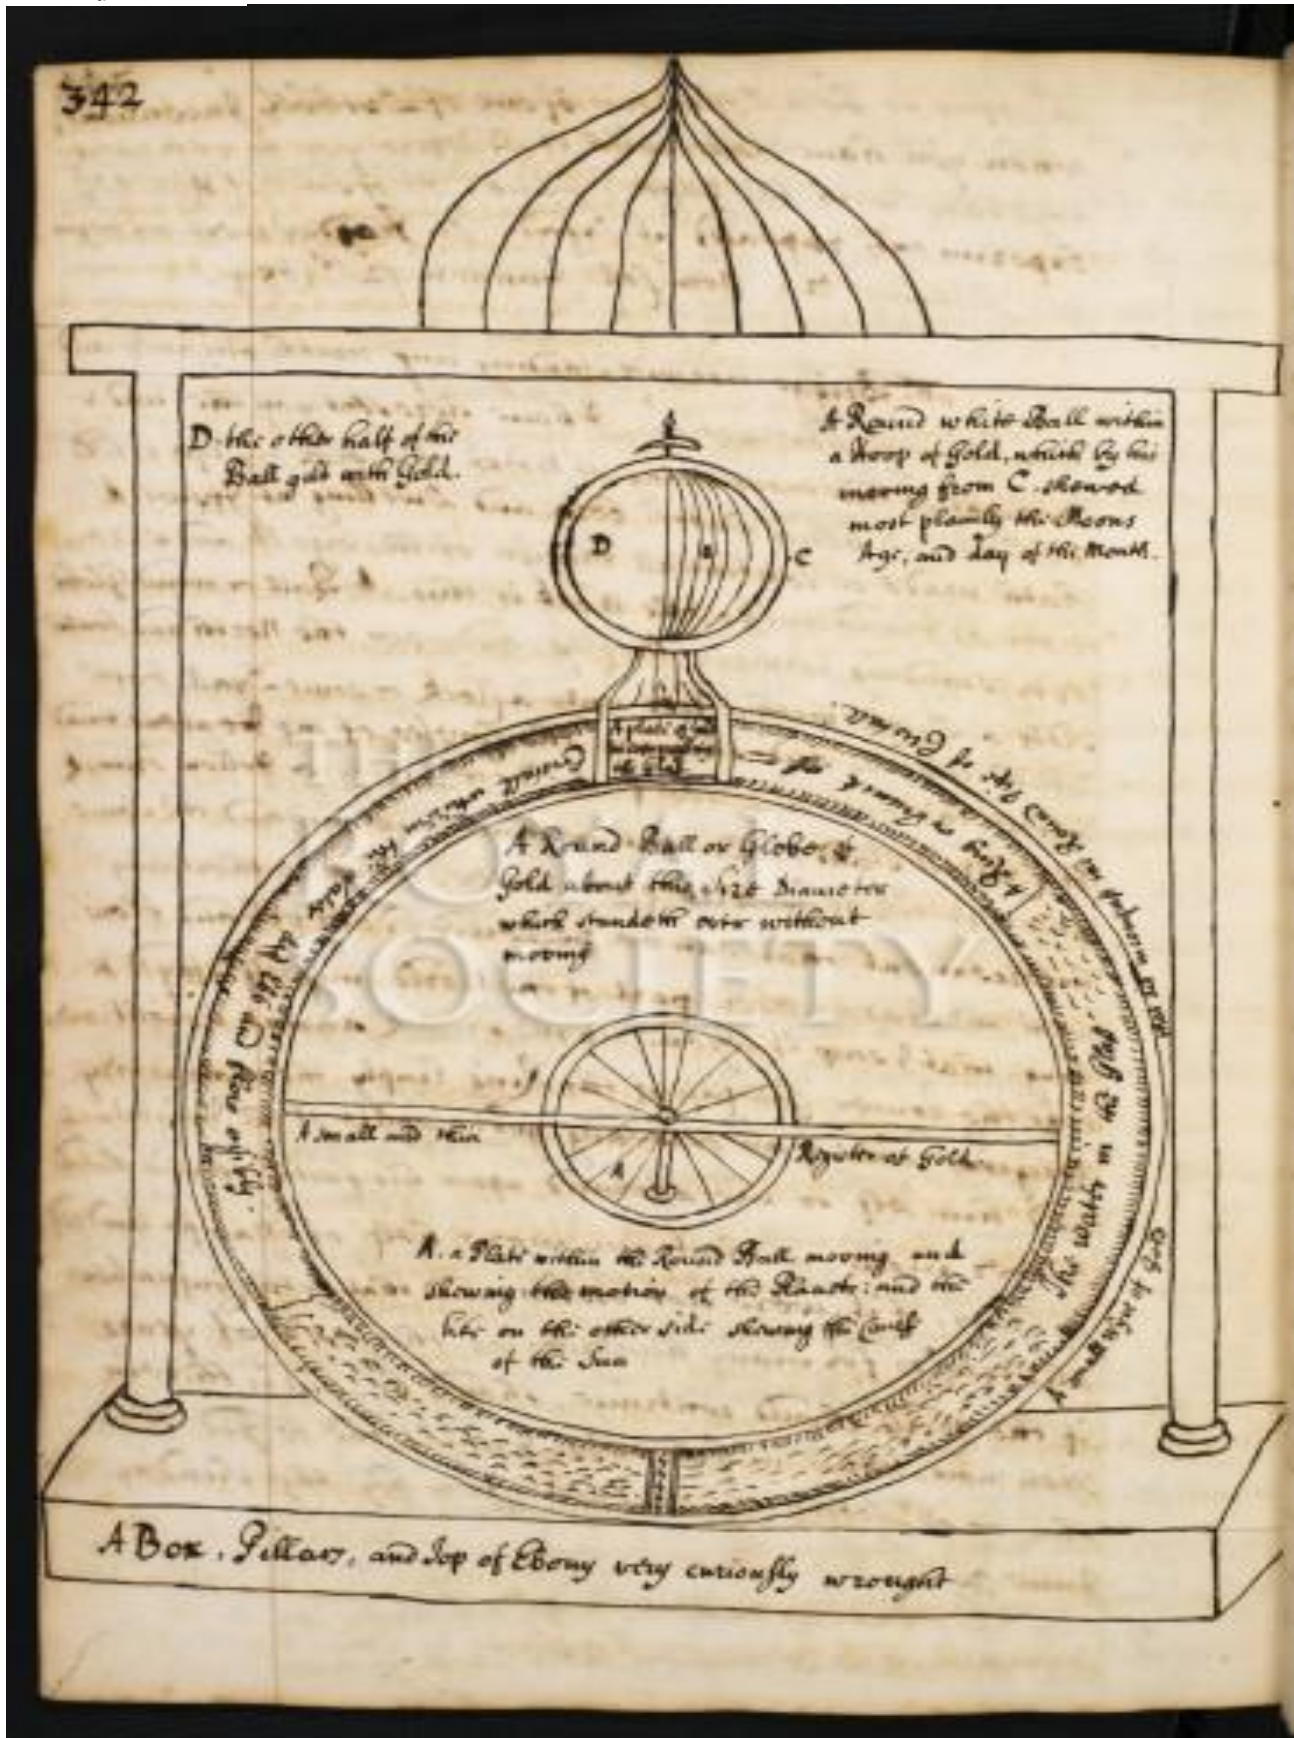 342
D. the other half of the
Ball gilt with Gold.
A Round white Ball within
a Hoop of Gold, which by his
moving from C. shewed
most plainly the Moons
Age, and day of the Month.
D
B
C
A plate of
A Ring or
The water in the Glass
A small wyre of Gold
A Round Ball or Globe of
Gold about this size Diameter
which standeth over without
moving
A small and thin
Register of Gold.
A
A. a Plate within the Round Ball moving and
shewing the motion of the Planets: and the
like on the other side shewing the Course
of the Sun
A Box, Pillars, and Top of Ebony very curiously wrought
THE
ROYAL
SOCIETY